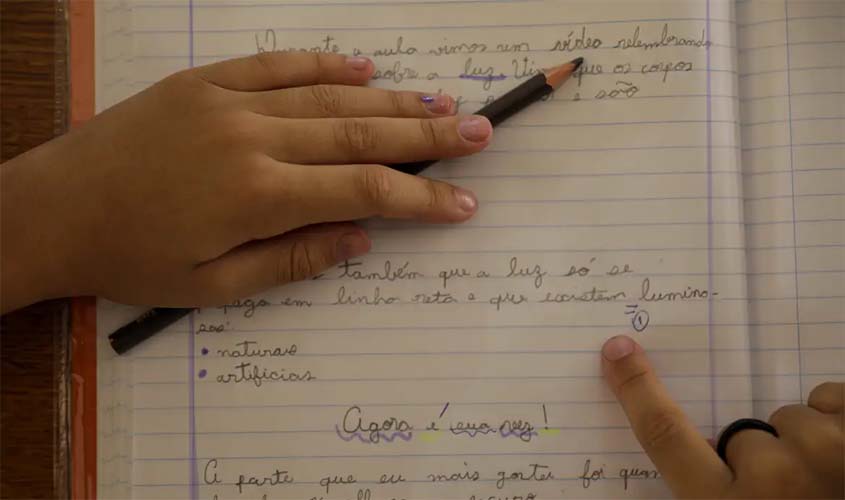 Durante a aula vimos um vídeo relembrando
sobre a luz que os corpos
e são
também que a luz só se
em linha reta e que existem lumino-
= ①
sos:
• naturais
• artificias
Agora é sua vez!
A parte que eu mais gostei foi